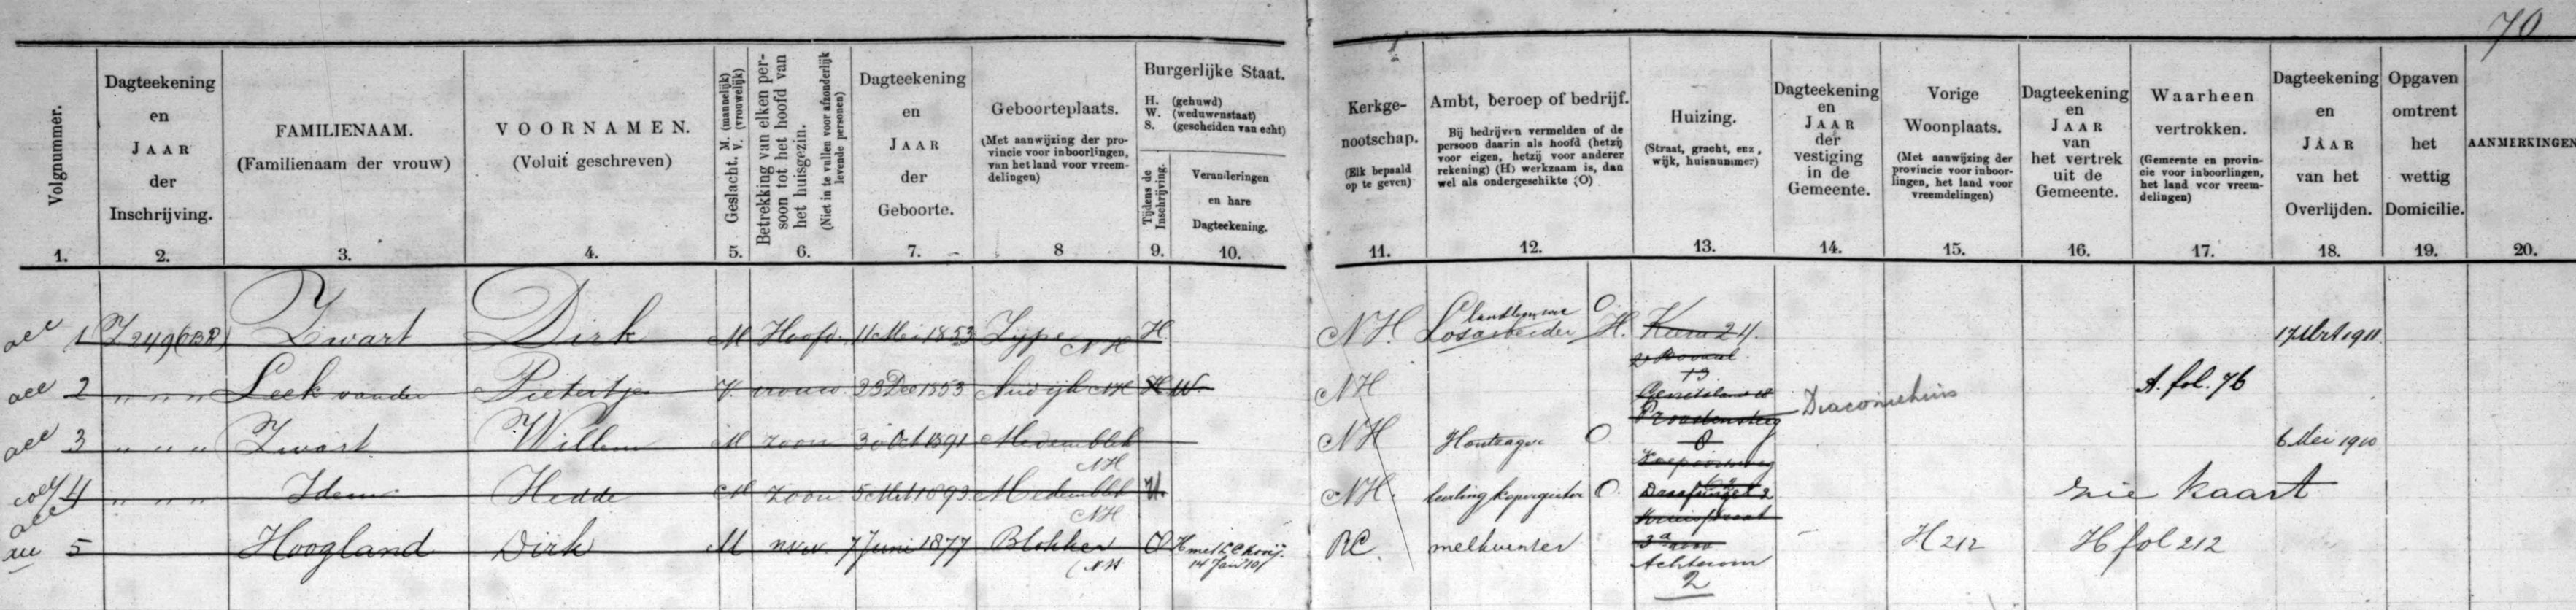 70
Volgnummer.
Dagteekening en JAAR der Inschrijving.
FAMILIENAAM.
(Familienaam der vrouw)
VOORNAMEN.
(Voluit geschreven)
Geslacht. M. (mannelijk) V. (vrouwelijk)
Betrekking van elken persoon tot het hoofd van het huisgezin.
(Niet in te vullen voor afzonderlijk levende personen)
Dagteekening en JAAR der Geboorte.
Geboorteplaats.
(Met aanwijzing der provincie voor inboorlingen, van het land voor vreemdelingen)
Burgerlijke Staat.
H. (gehuwd)
W. (weduwenstaat)
S. (gescheiden van echt)
Tijdens de Inschrijving.
Veranderingen en hare Dagteekening.
Kerkgenootschap.
(Elk bepaald op te geven)
Ambt, beroep of bedrijf.
Bij bedrijven vermelden of de persoon daarin als hoofd (hetzij voor eigen, hetzij voor anderer rekening) (H) werkzaam is, dan wel als ondergeschikte (O)
Huizing.
(Straat, gracht, enz, wijk, huisnummer)
Dagteekening en JAAR der vestiging in de Gemeente.
Vorige Woonplaats.
(Met aanwijzing der provincie voor inboorlingen, het land voor vreemdelingen)
Dagteekening en JAAR van het vertrek uit de Gemeente.
Waarheen vertrokken.
(Gemeente en provincie voor inboorlingen, het land voor vreemdelingen)
Dagteekening en JAAR van het Overlijden.
Opgaven omtrent het wettig Domicilie.
AANMERKINGEN
1. 2. 3. 4. 5. 6. 7. 8 9. 10. 11. 12. 13. 14. 15. 16. 17. 18. 19. 20.
1 Z 249 (BR) Zwart Dirk M Hoofd 11 Mei 1853 Zijpe NH H. NH. Losarbeider H. 24. 17 Mrt 1911
2 " " " Leek van der Pietertje V. vrouw 23 Dec 1853 NH H W. NH Diaconiehuis A. fol. 76
3 " " " Zwart Willem M zoon 30 Oct 1891 Medemblik NH NH O 6 Mei 1910
4 " " " Idem Hedde M zoon 5 Mrt 1893 Medemblik NH NH. leerling kopergieter O. zie kaart
5 Hoogland Dirk M 7 Juni 1877 Blokker NH H met 14 Jan RC. melkventer Achterom 2 H 212 H fol 212